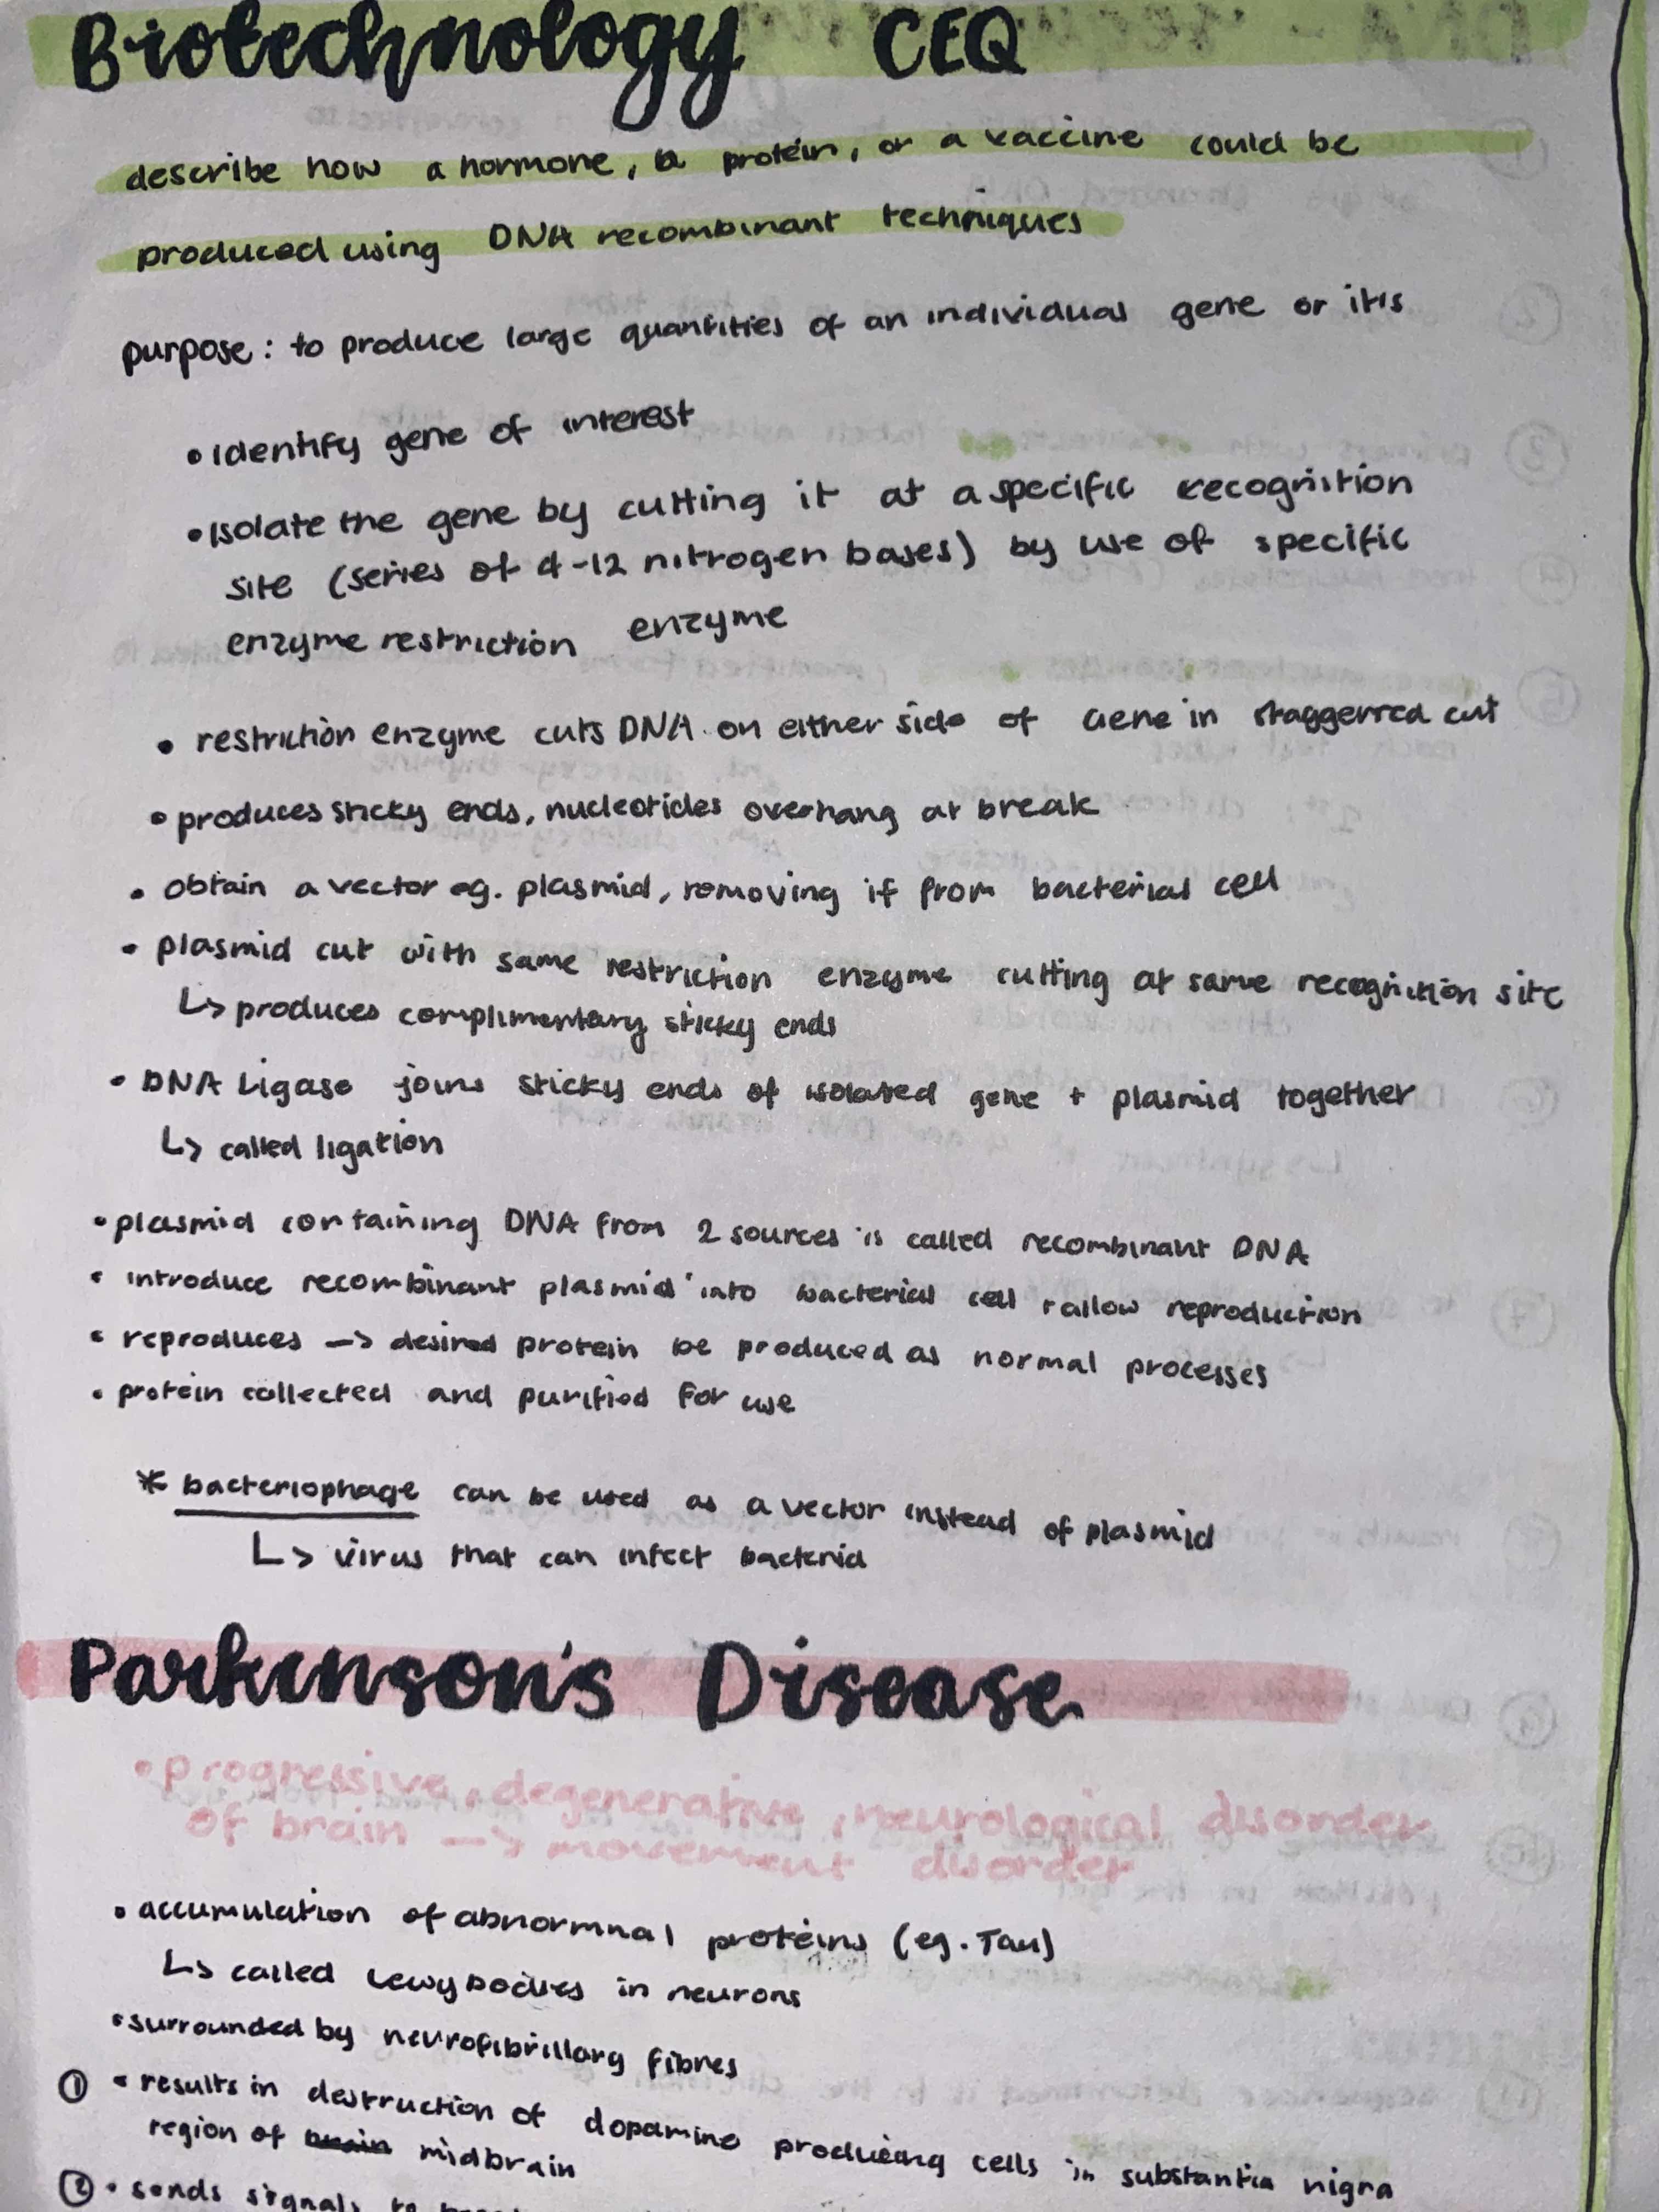 Biotechnology CEQ
describe how a hormone, a protein, or a vaccine could be
produced using DNA recombinant techniques
purpose: to produce large quantities of an individual gene or it's
• identify gene of interest
• isolate the gene by cutting it at a specific recognition
site (series of 4-12 nitrogen bases) by use of specific
enzyme restriction enzyme
• restriction enzyme cuts DNA on either side of gene in staggerred cut
• produces sticky ends, nucleotides overhang at break
• obtain a vector eg. plasmid, removing it from bacterial cell
• plasmid cut with same restriction enzyme cutting at same recognition site
↳ produces complimentary sticky ends
• DNA Ligase joins sticky ends of isolated gene + plasmid together
↳ called ligation
• plasmid containing DNA from 2 sources is called recombinant DNA
• introduce recombinant plasmid into bacterial cell + allow reproduction
• reproduces -> desired protein be produced as normal processes
• protein collected and purified for use
* bacteriophage can be used as a vector instead of plasmid
↳ virus that can infect bacteria
Parkinson's Disease
• progressive, degenerative, neurological disorder
of brain -> movement disorder
• accumulation of abnormnal proteins (eg. Tau)
↳ called Lewy bodies in neurons
• surrounded by neurofibrillary fibres
① • results in destruction of dopamine producing cells in substantia nigra
region of brain midbrain
② • sends signals to